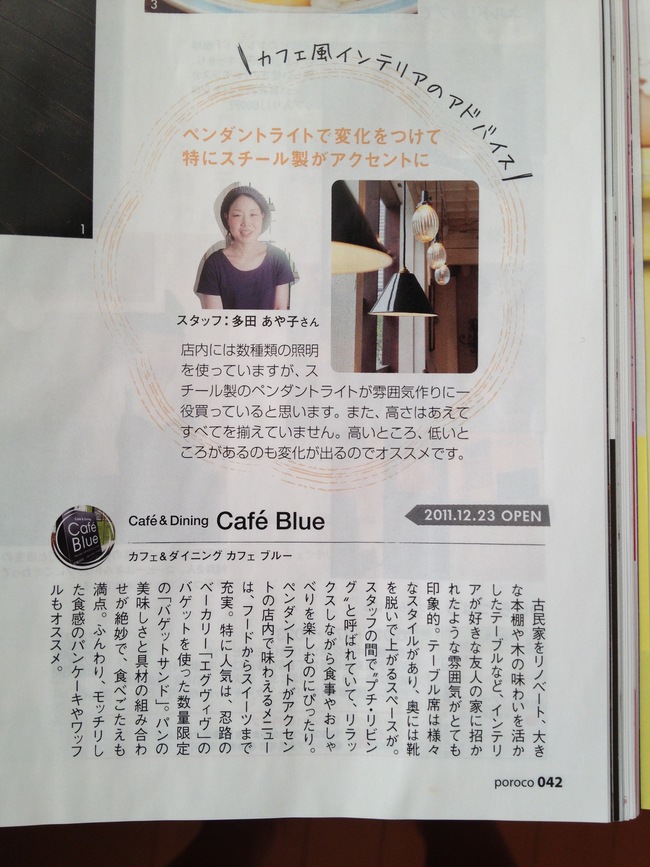 3
カフェ風インテリアのアドバイス
ペンダントライトで変化をつけて
特にスチール製がアクセントに
1
スタッフ：多田 あや子さん
店内には数種類の照明
を使っていますが、ス
チール製のペンダントライトが雰囲気作りに一
役買っていると思います。また、高さはあえて
すべてを揃えていません。高いところ、低いと
ころがあるのも変化が出るのでオススメです。
Café & Dining
Café Blue
Café & Dining Café Blue
2011.12.23 OPEN
カフェ&ダイニング カフェ ブルー
古民家をリノベート、大き
な本棚や木の味わいを活か
したテーブルなど、インテリ
アが好きな友人の家に招か
れたような雰囲気がとても
印象的。テーブル席は様々
なスタイルがあり、奥には靴
を脱いで上がるスペースが。
スタッフの間で〝プチ・リビン
グ〟と呼ばれていて、リラッ
クスしながら食事やおしゃ
べりを楽しむのにぴったり。
ペンダントライトがアクセン
トの店内で味わえるメニュー
は、フードからスイーツまで
充実。特に人気は、忍路の
ベーカリー「エグヴィヴ」の
バゲットを使った数量限定
の「バゲットサンド」。パンの
美味しさと具材の組み合わ
せが絶妙で、食べごたえも
満点。ふんわり、モッチリし
た食感のパンケーキやワッフ
ルもオススメ。
poroco 042